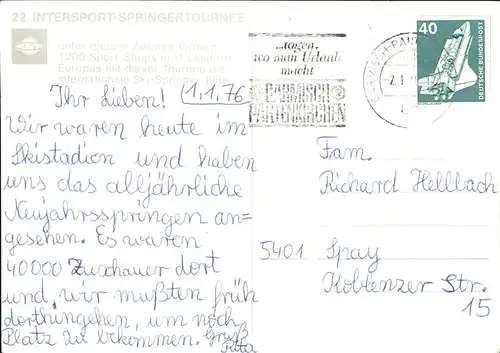 22. INTERSPORT-SPRINGERTOURNEE
unter diesem Zeichen
1200 Sport Shops in 11 Ländern
Europas mit dieser Tournee die
internationale Ski-Springer
...tagen,
wo man Urlaub
macht
GARMISCH
PARTENKIRCHEN
GARMISCH-PA
2.1.
40
DEUTSCHE BUNDESPOST
Ihr Lieben! 1.1.76
Wir waren heute im
Skistadion und haben
uns das alljährliche
Neujahrsspringen an-
gesehen. Es waren
40000 Zuschauer dort
und wir mußten früh
dorthingehen, um noch
Platz zu bekommen. Gruß
Rita
Fam.
Richard Hellbach
5401 Spay
Koblenzer Str.
15